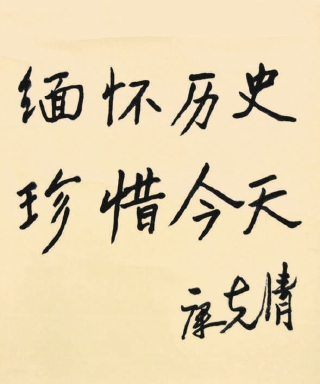 缅怀历史
珍惜今天
康克清